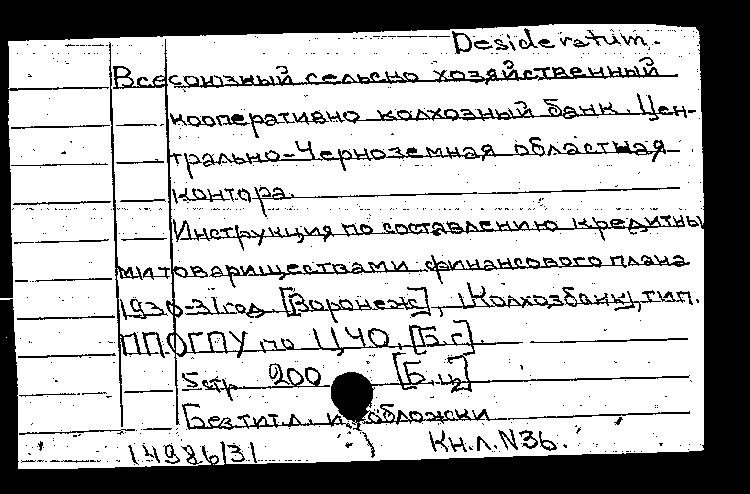 Desideratum.
Всесоюзный сельско хозяйственный
кооперативно колхозный банк. Цен-
трально-Черноземная областная
контора.
Инструкция по составлению кредитны
ми товариществами финансового плана
1930-31 год. [Воронеж], "Колхозбанк", тип.
ПП ОГПУ по ЦЧО. [Б.г].
5 стр. 200 [Б.ц]
Без тит. л. и обложки
14986/31 Кн.л. N36.